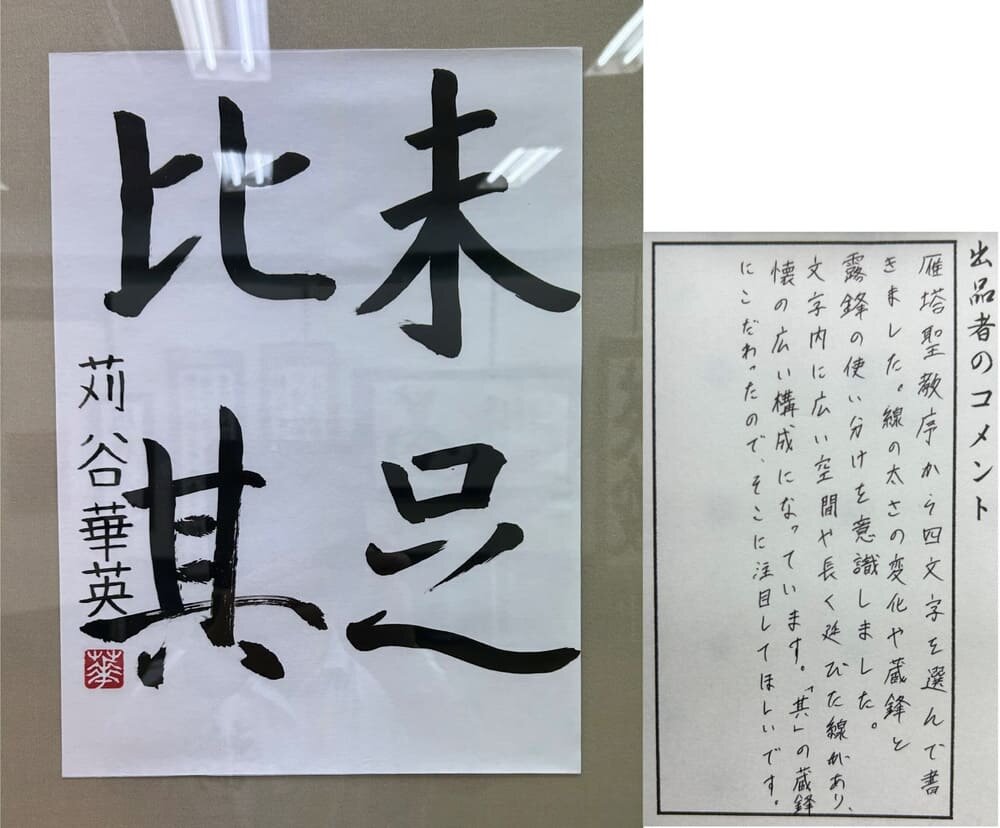 未足
比其
苅谷華英
華
出品者のコメント
雁塔聖教序から四文字を選んで書
きました。線の太さの変化や蔵鋒と
露鋒の使い分けを意識しました。
文字内に広い空間や長く延びた線があり、
懐の広い構成になっています。「其」の蔵鋒
にこだわったので、そこに注目してほしいです。